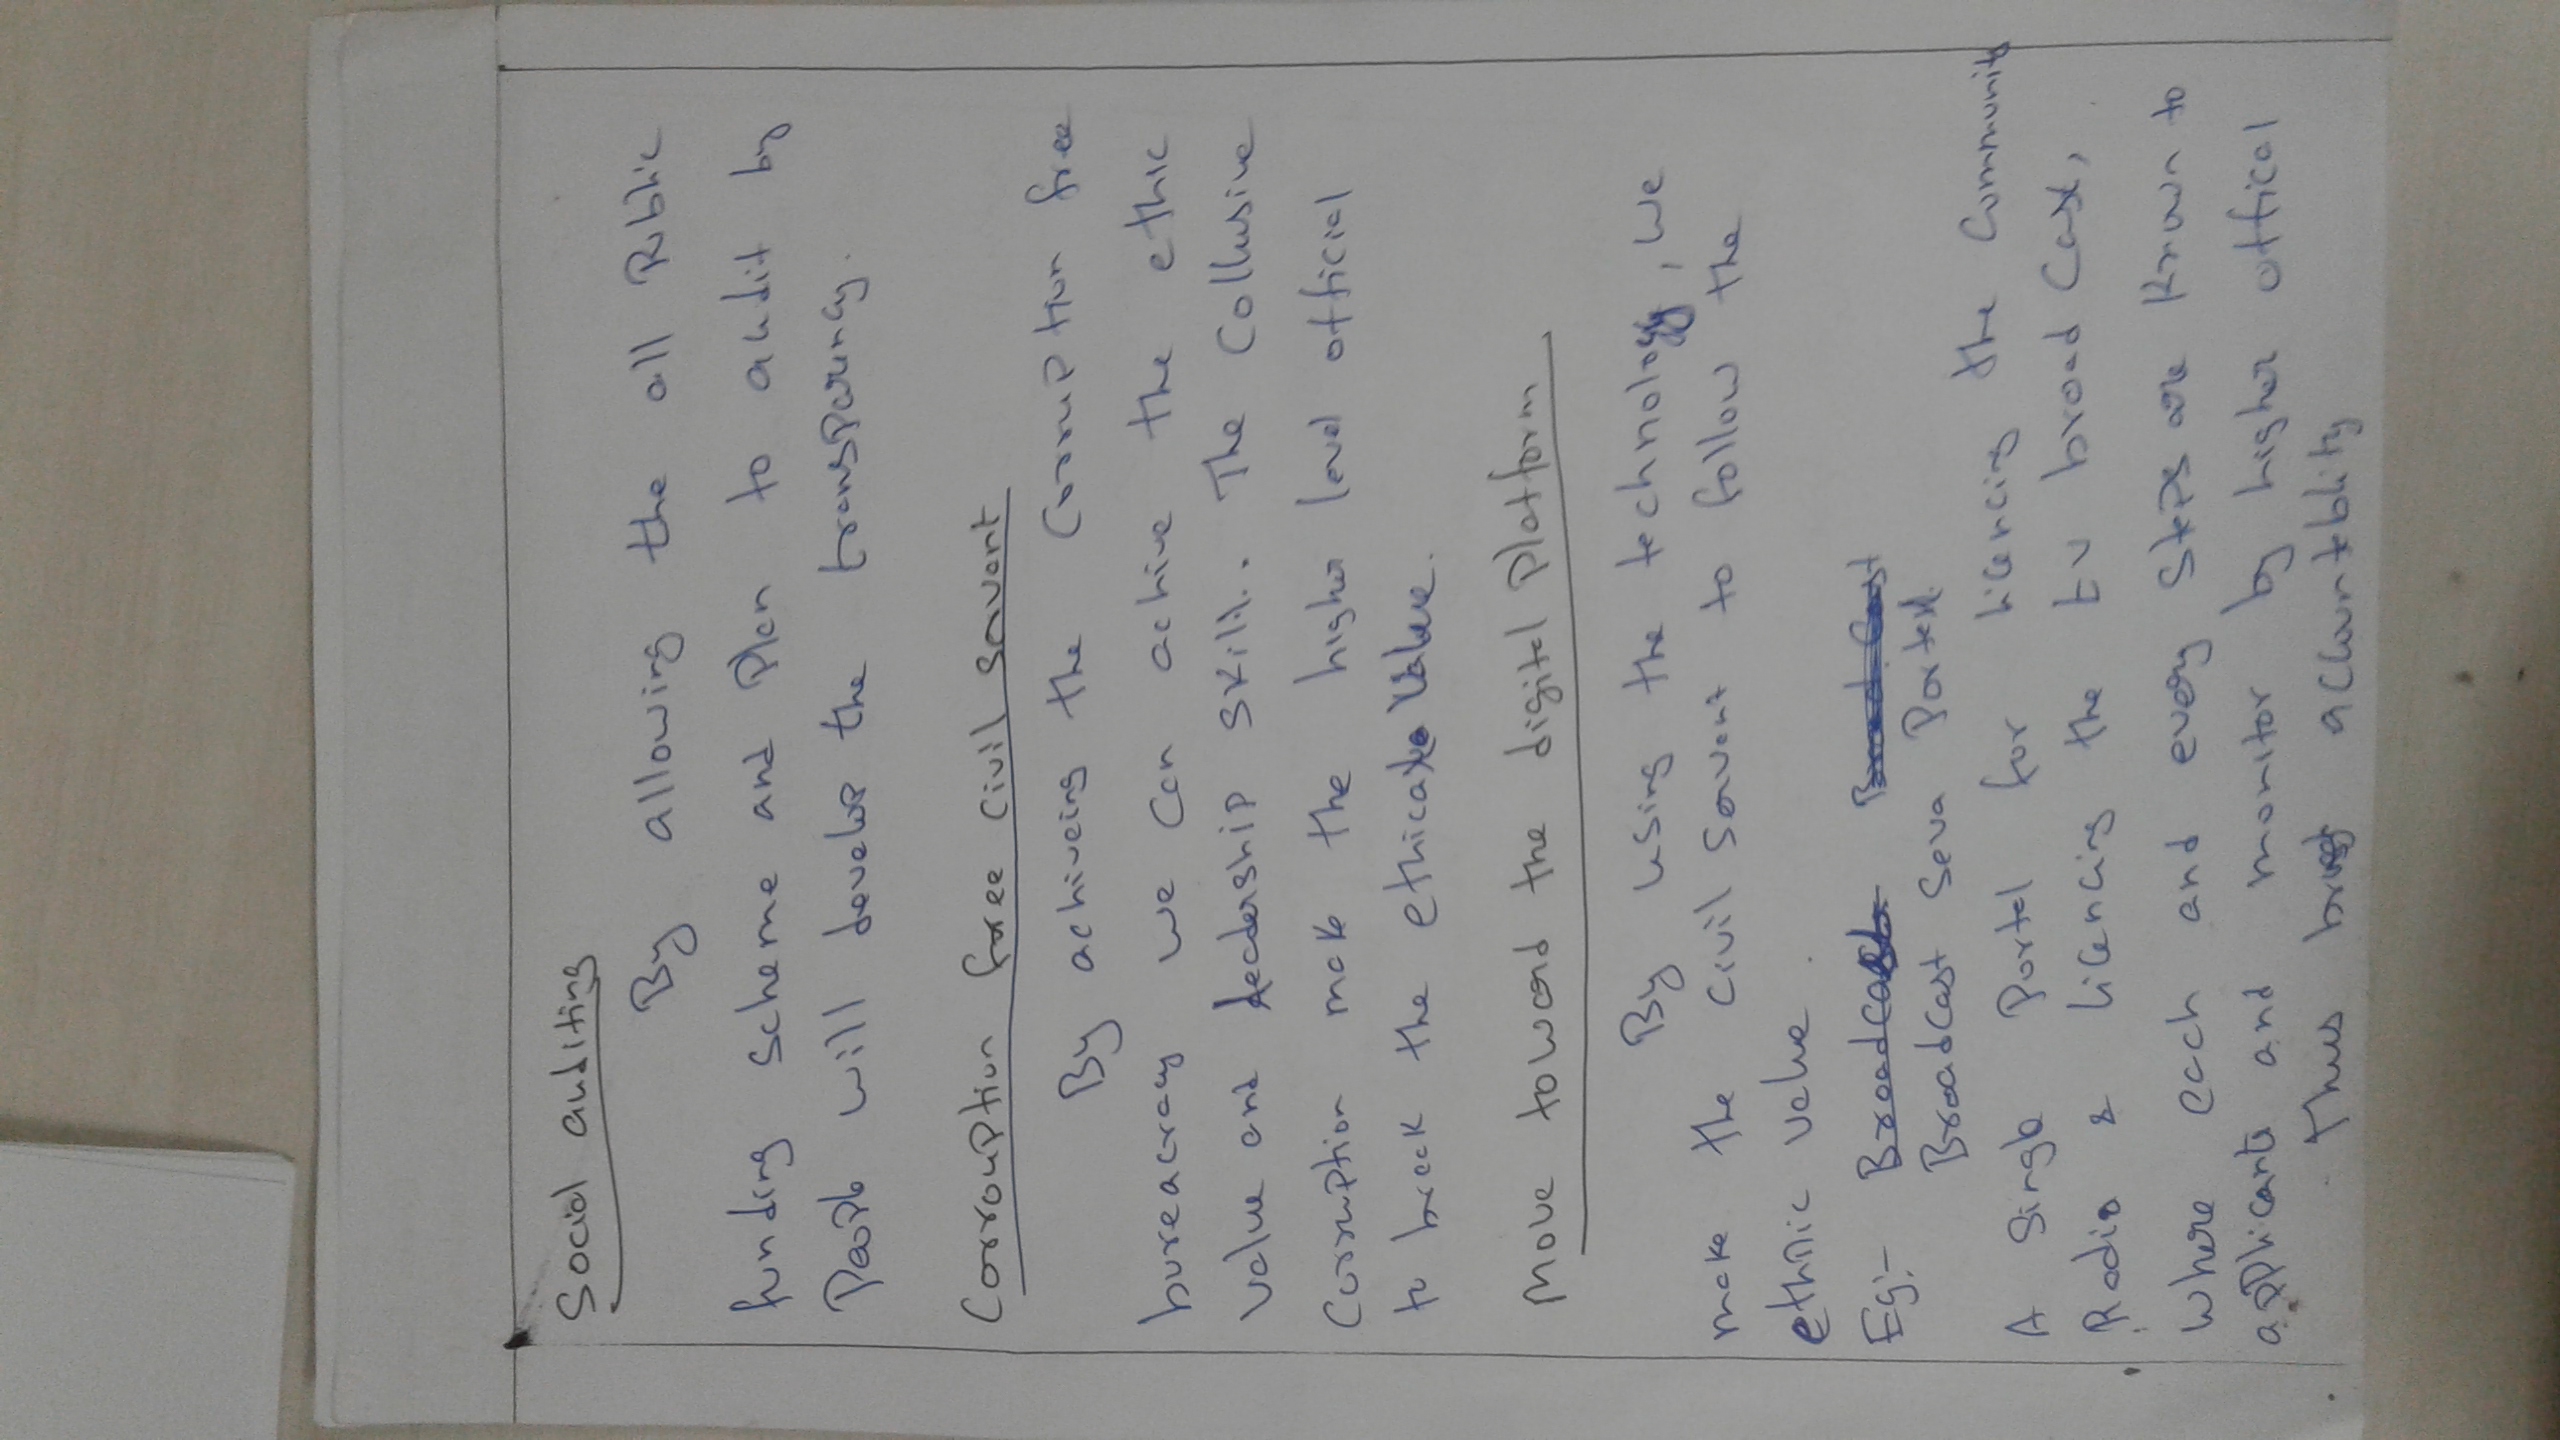 Social auditing
By allowing the all Public
funding scheme and Plan to audit by
People will develop the transparency.
Corrouption free civil servant
By achiveing the Corruption free
bureacracy we can achive the ethic
value and leadership skill. The Collusive
Corruption make the higher level official
to break the ethical value.
Move toward the digital Platform
By using the technology, we
make the civil servant to follow the
ethnic value.
Eg:- Broadcast Broad Cast
Broadcast Seva Portal
A Single Portal for licencing the Community
Radio & licencing the tv broad Cast,
where each and every steps are known to
applicants and monitor by higher offical
Thus bring accountblity